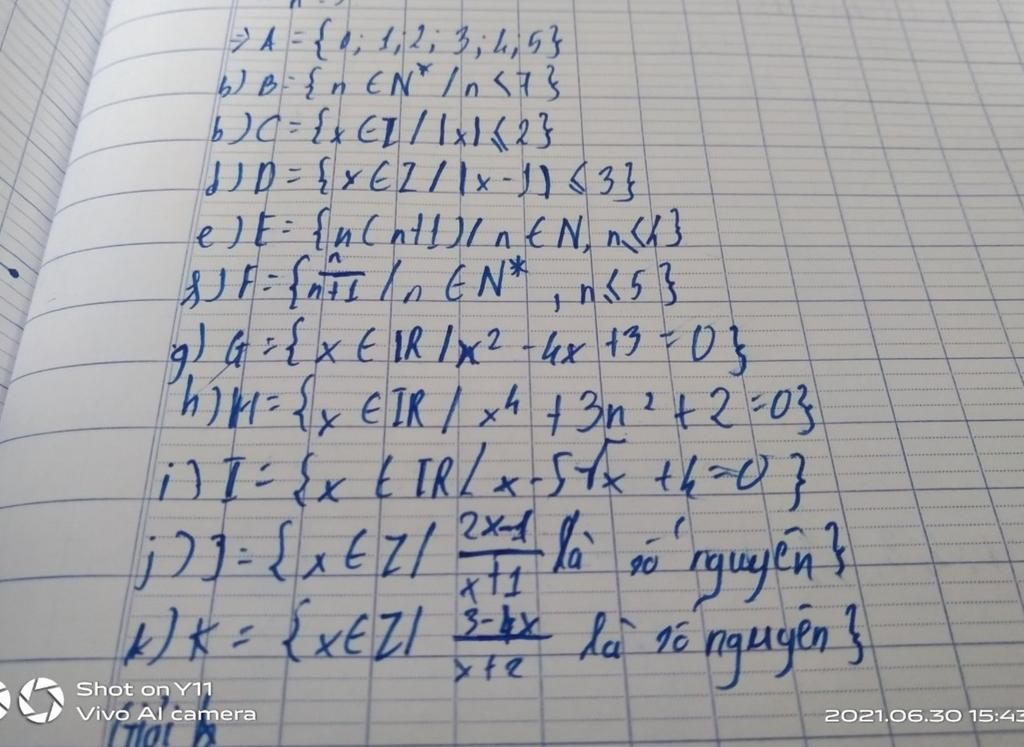 => A = {0; 1, 2; 3; 4, 5}
b) B = {n ∈ N* / n < 7}
b) C = {x ∈ Z / |x| ⩽ 2}
d) D = {x ∈ Z / |x - 1| ⩽ 3}
e) E = {n(n+1) / n ∈ N, n ⩽ 4}
f) F = {n/(n+1) / n ∈ N*, n ⩽ 5}
g) G = {x ∈ IR / x² - 4x + 3 = 0}
h) H = {x ∈ IR / x⁴ + 3n² + 2 = 0}
i) I = {x ∈ IR / x - 5√x + 4 = 0}
j) J = {x ∈ Z / (2x-1)/(x+1) là số nguyên}
k) K = {x ∈ Z / (3-4x)/(x+2) là số nguyên}
Shot on Y11
Vivo AI camera
2021.06.30 15:43